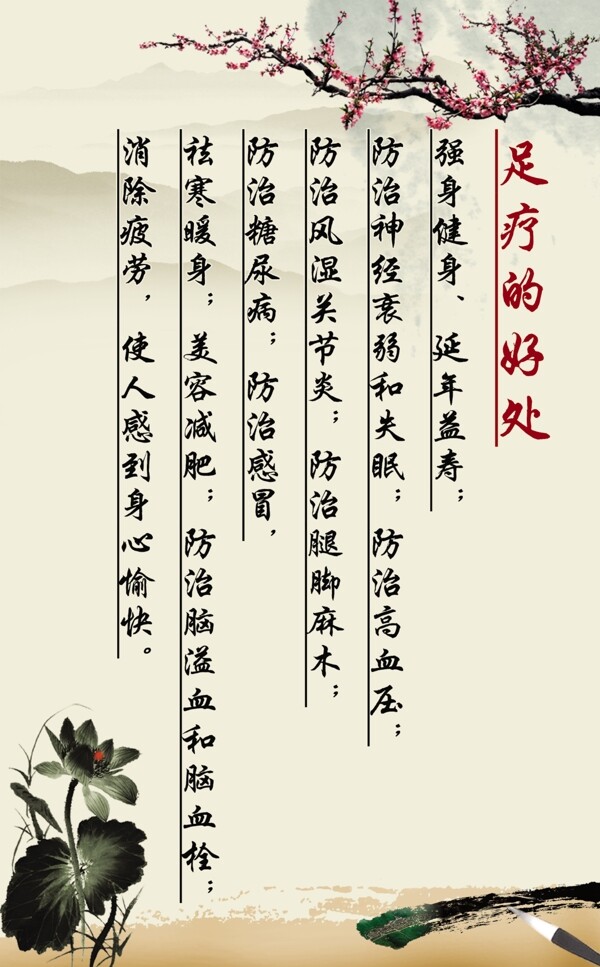 足疗的好处
强身健身、延年益寿；
防治神经衰弱和失眠；防治高血压；
防治风湿关节炎；防治腿脚麻木；
防治糖尿病；防治感冒，
祛寒暖身；美容减肥；防治脑溢血和脑血栓；
消除疲劳，使人感到身心愉快。